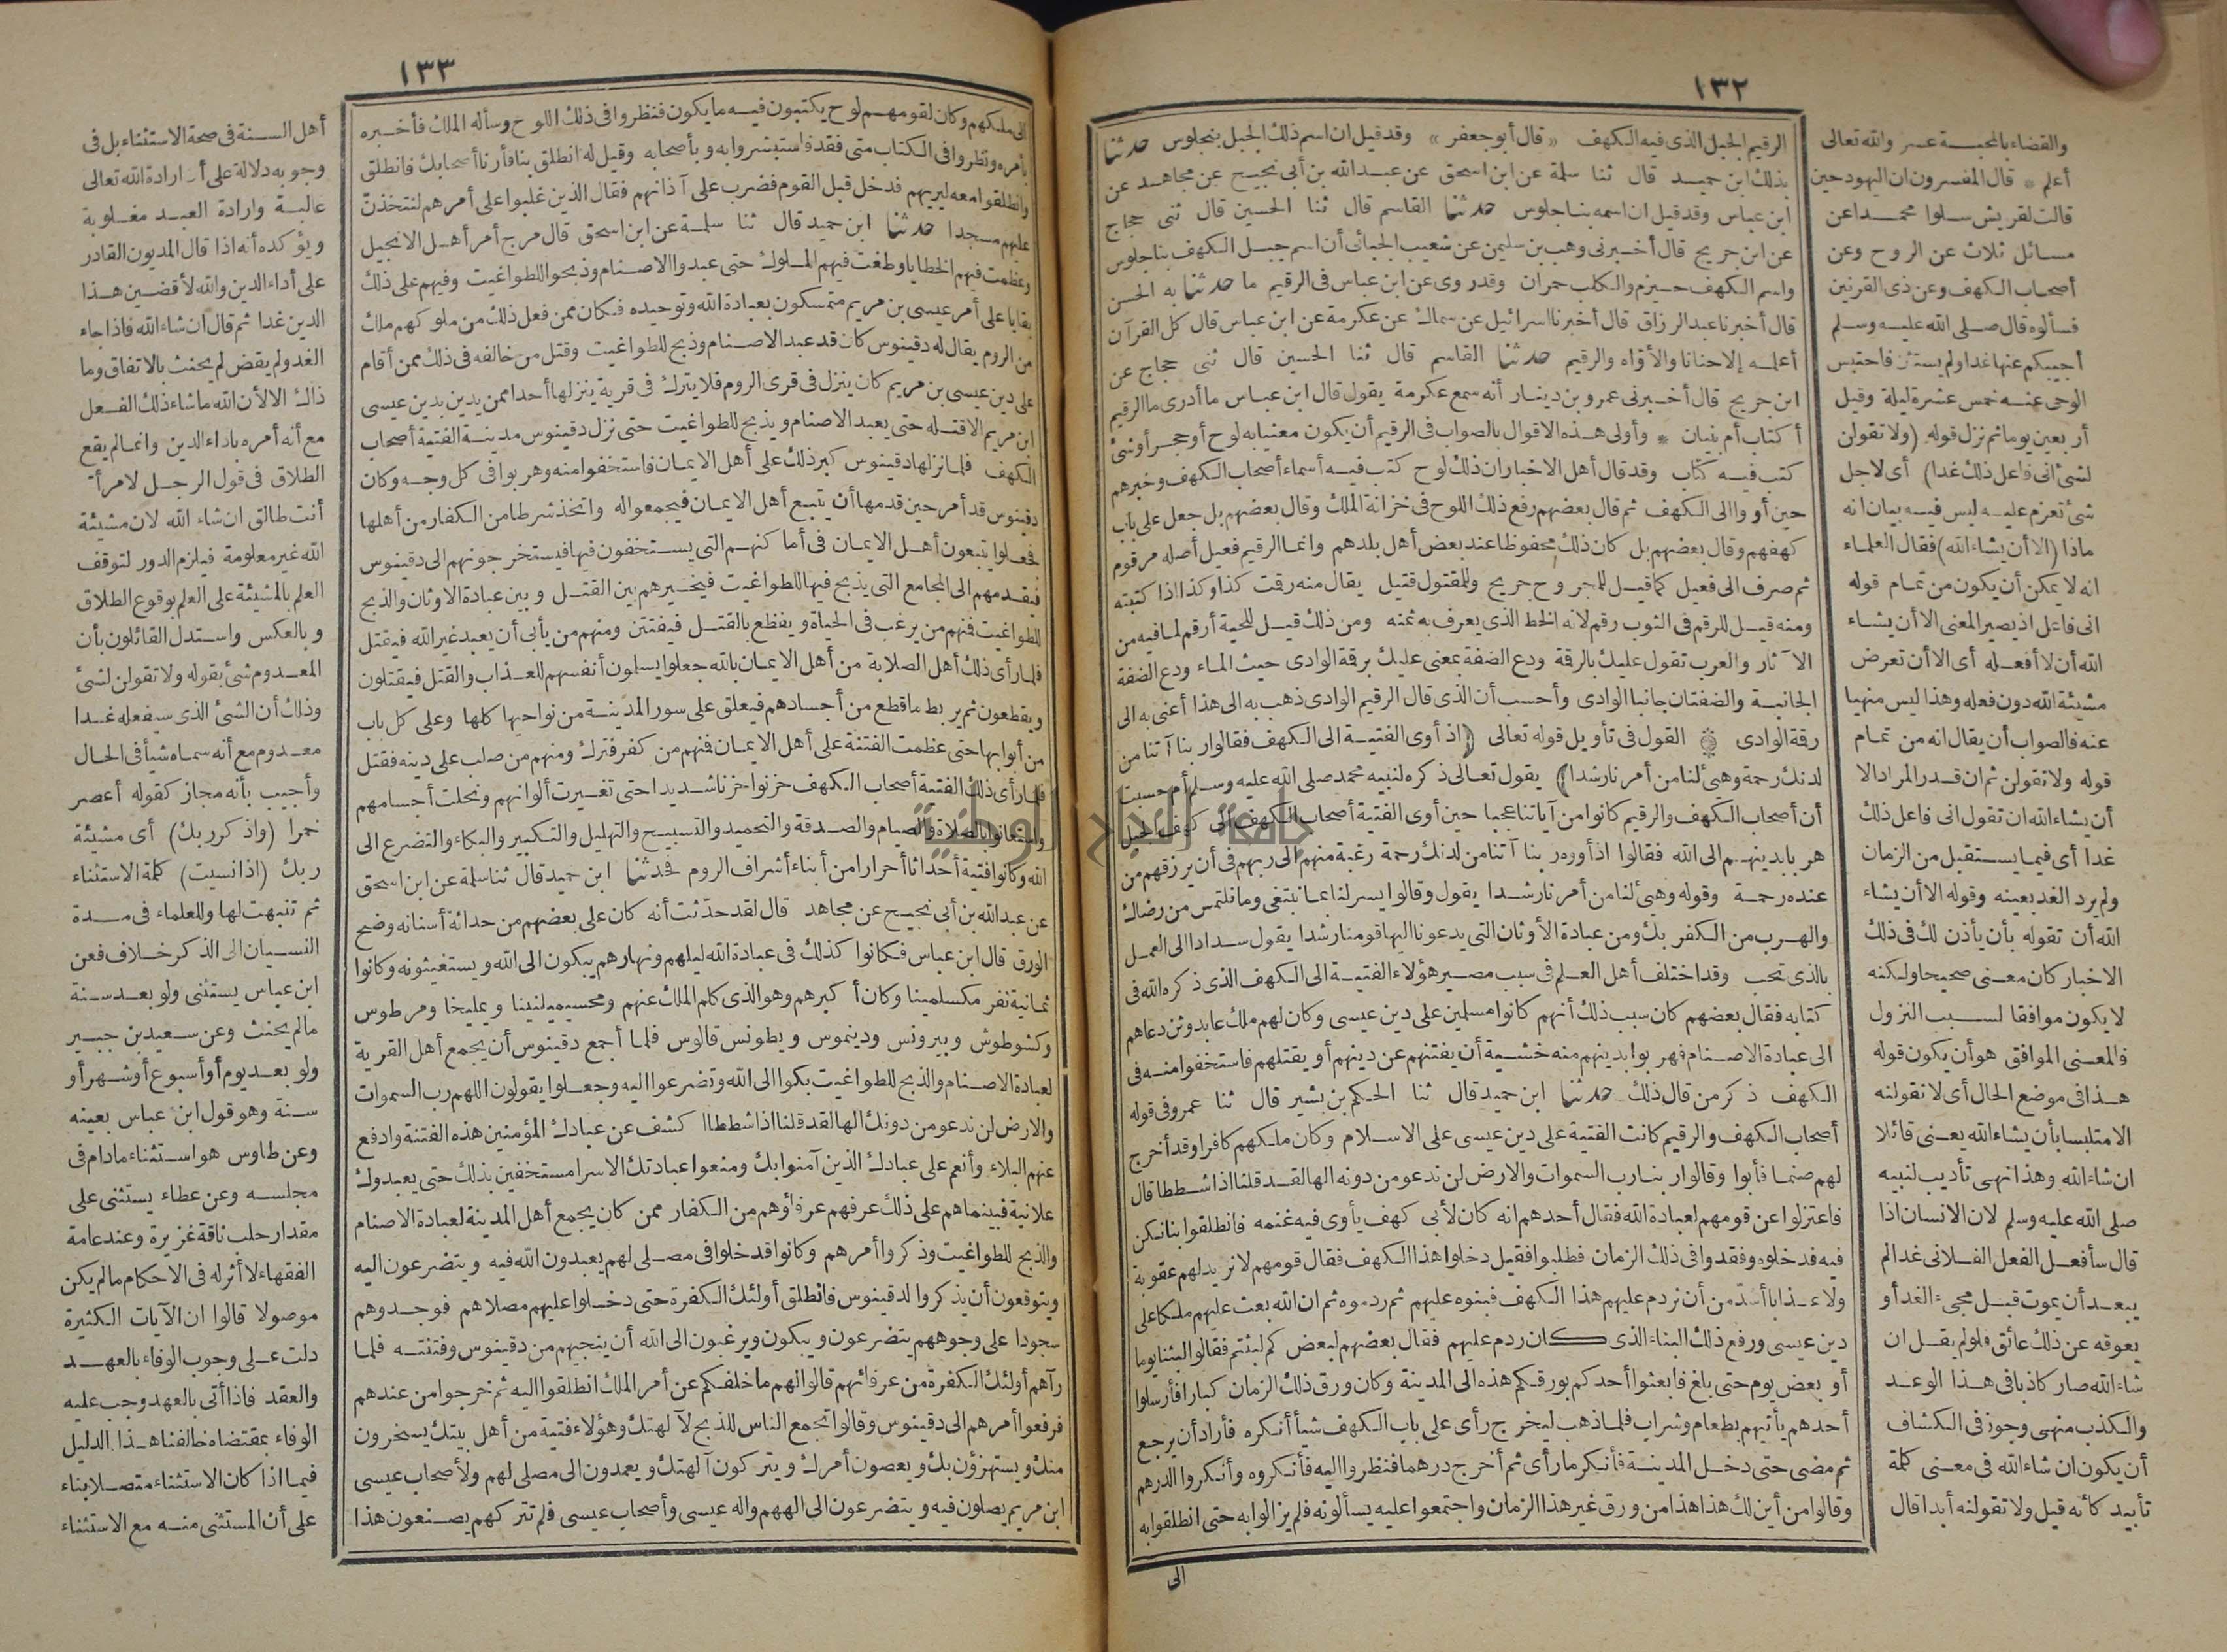 ١٣٢
الرقيم الجبل الذى فيه الكهف «قال أبو جعفر» وقد قيل ان اسم ذلك الجبل بنجلوس حدثنا
بذلك ابن حميد قال ثنا سلمة عن ابن اسحق عن عبد الله بن أبى نجيح عن مجاهد عن
ابن عباس وقد قيل ان اسمه بناجلوس حدثنا القاسم قال ثنا الحسين قال ثنى حجاج
عن ابن جريج قال أخبرنى وهب بن سليمن عن شعيب الجبائى أن اسم جبل الكهف بناجلوس
واسم الكهف حيزم والكلب حمران وقد روى عن ابن عباس فى الرقيم ما حدثنا به الحسن
قال أخبرنا عبد الرزاق قال أخبرنا اسرائيل عن سماك عن عكرمة عن ابن عباس قال كل القرآن
أعلمه إلا حنانا والأوّاه والرقيم حدثنا القاسم قال ثنا الحسين قال ثنى حجاج عن
ابن جريج قال أخبرنى عمرو بن دينار أنه سمع عكرمة يقول قال ابن عباس ما أدرى ما الرقيم
أكتاب أم بنيان * وأولى هذه الاقوال بالصواب فى الرقيم أن يكون معنيا به لوح أو حجر أو شئ
كتب فيه كتاب وقد قال أهل الاخبار ان ذلك لوح كتب فيه أسماء أصحاب الكهف وخبرهم
حين أووا الى الكهف ثم قال بعضهم رفع ذلك اللوح فى خزانة الملك وقال بعضهم بل جعل على باب
كهفهم وقال بعضهم بل كان ذلك محفوظا عند بعض أهل بلدهم وانما الرقيم فعيل أصله مرقوم
ثم صرف الى فعيل كما قيل للمجروح جريح وللمقتول قتيل يقال منه رقمت كذا وكذا اذا كتبته
ومنه قيل للرقم فى الثوب رقم لانه الخط الذى يعرف به ثمنه ومن ذلك قيل للحية أرقم لما فيه من
الآثار والعرب تقول عليك بالرقة ودع الضفة بمعنى عليك برقة الوادى حيث الماء ودع الضفة
الجانبة والضفتان جانبا الوادى وأحسب أن الذى قال الرقيم الوادى ذهب به الى هذا أعنى به الى
رقة الوادى ۞ القول فى تأويل قوله تعالى (اذ أوى الفتية الى الكهف فقالوا ربنا آتنا من
لدنك رحمة وهيئ لنا من أمرنا رشدا) يقول تعالى ذكره لنبيه محمد صلى الله عليه وسلم أم حسبت
أن أصحاب الكهف والرقيم كانوا من آياتنا عجبا حين أوى الفتية أصحاب الكهف الى كهف الجبل
هربا بدينهم الى الله فقالوا اذ أووه ربنا آتنا من لدنك رحمة رغبة منهم الى ربهم فى أن يرزقهم من
عنده رحمة وقوله وهيئ لنا من أمرنا رشدا يقول وقالوا يسر لنا بما نبتغى وما نلتمس من رضاك
والهرب من الكفر بك ومن عبادة الأوثان التى يدعونا اليها قومنا رشدا يقول سدادا الى العمل
بالذى تحب وقد اختلف أهل العلم فى سبب مصير هؤلاء الفتية الى الكهف الذى ذكره الله فى
كتابه فقال بعضهم كان سبب ذلك أنهم كانوا مسلمين على دين عيسى وكان لهم ملك عابد وثن دعاهم
الى عبادة الاصنام فهربوا بدينهم منه خشية أن يفتنهم عن دينهم أو يقتلهم فاستخفوا منه فى
الكهف ذكر من قال ذلك حدثنا ابن حميد قال ثنا الحكم بن بشير قال ثنا عمرو فى قوله
أصحاب الكهف والرقيم كانت الفتية على دين عيسى على الاسلام وكان ملكهم كافرا وقد أخرج
لهم صنما فأبوا وقالوا ربنا رب السموات والارض لن ندعو من دونه الها لقد قلنا اذا شططا قال
فاعتزلوا عن قومهم لعبادة الله فقال أحدهم انه كان لأبى كهف يأوى فيه غنمه فانطلقوا بنا نكن
فيه فدخلوه وفقدوا فى ذلك الزمان فطلبوا فقيل دخلوا هذا الكهف فقال قومهم لا نريد لهم عقوبة
ولا عذابا أشدّ من أن نردم عليهم هذا الكهف فبنوه عليهم ثم ردموه ثم ان الله بعث عليهم ملكا على
دين عيسى ورفع ذلك البناء الذى كان ردم عليهم فقال بعضهم لبعض كم لبثتم فقالوا لبثنا يوما
أو بعض يوم حتى بلغ فابعثوا أحدكم بورقكم هذه الى المدينة وكان ورق ذلك الزمان كبارا فأرسلوا
أحدهم يأتيهم بطعام وشراب فلما ذهب ليخرج رأى على باب الكهف شيأ أنكره فأراد أن يرجع
ثم مضى حتى دخل المدينة فأنكر ما رأى ثم أخرج درهما فنظروا اليه فأنكروه وأنكروا الدرهم
وقالوا من أين لك هذا هذا من ورق غير هذا الزمان واجتمعوا عليه يسألونه فلم يزالوا به حتى انطلقوا به
الى
والقضاء بالمحبة عسر والله تعالى
أعلم * قال المفسرون ان اليهود حين
قالت لقريش سلوا محمدا عن
مسائل ثلاث عن الروح وعن
أصحاب الكهف وعن ذى القرنين
فسألوه قال صلى الله عليه وسلم
أجيبكم عنها غدا ولم يستثن فاحتبس
الوحى عنه خمس عشرة ليلة وقيل
أربعين يوما ثم نزل قوله (ولا تقولن
لشئ انى فاعل ذلك غدا) أى لاجل
شئ تعزم عليه ليس فيه بيان انه
ماذا (الا أن يشاء الله) فقال العلماء
انه لا يمكن أن يكون من تمام قوله
انى فاعل اذ يصير المعنى الا أن يشاء
الله أن لا أفعله أى الا أن تعرض
مشيئة الله دون فعله وهذا ليس منهيا
عنه فالصواب أن يقال انه من تمام
قوله ولا تقولن ثم ان قدر المراد الا
أن يشاء الله ان تقول انى فاعل ذلك
غدا أى فيما يستقبل من الزمان
ولم يرد الغد بعينه وقوله الا أن يشاء
الله أن تقوله بأن يأذن لك فى ذلك
الاخبار كان معنى صحيحا ولكنه
لا يكون موافقا لسبب النزول
فالمعنى الموافق هو أن يكون قوله
هذا فى موضع الحال أى لا تقولنه
الا متلبسا بأن يشاء الله يعنى قائلا
ان شاء الله وهذا نهى تأديب لنبيه
صلى الله عليه وسلم لان الانسان اذا
قال سأفعل الفعل الفلانى غدا لم
يبعد أن يموت قبل مجىء الغد أو
يعوقه عن ذلك عائق فلو لم يقل ان
شاء الله صار كاذبا فى هذا الوعد
والكذب منهى وجوز فى الكشاف
أن يكون ان شاء الله فى معنى كلمة
تأبيد كأنه قيل ولا تقولنه أبدا قال
١٣٣
الى ملكهم وكان لقومهم لوح يكتبون فيه ما يكون فنظروا فى ذلك اللوح وسأله الملك فأخبره
بأمره ونظروا فى الكتاب متى فقد فاستبشروا به وبأصحابه وقيل له انطلق بنا فأرنا أصحابك فانطلق
وانطلقوا معه ليريهم فدخل قبل القوم فضرب على آذانهم فقال الذين غلبوا على أمرهم لنتخذنّ
عليهم مسجدا حدثنا ابن حميد قال ثنا سلمة عن ابن اسحق قال مرج أمر أهل الانجيل
وعظمت فيهم الخطايا وطغت فيهم الملوك حتى عبدوا الاصنام وذبحوا للطواغيت وفيهم على ذلك
بقايا على أمر عيسى بن مريم متمسكون بعبادة الله وتوحيده فكان ممن فعل ذلك من ملوكهم ملك
من الروم يقال له دقينوس كان قد عبد الاصنام وذبح للطواغيت وقتل من خالفه فى ذلك ممن أقام
على دين عيسى بن مريم كان ينزل فى قرى الروم فلا يترك فى قرية ينزلها أحدا ممن يدين بدين عيسى
ابن مريم الا قتله حتى يعبد الاصنام ويذبح للطواغيت حتى نزل دقينوس مدينة الفتية أصحاب
الكهف فلما نزلها دقينوس كبر ذلك على أهل الايمان فاستخفوا منه وهربوا فى كل وجه وكان
دقينوس قد أمر حين قدمها أن يتبع أهل الايمان فيجمعوا له واتخذ شرطا من الكفار من أهلها
فجعلوا يتبعون أهل الايمان فى أماكنهم التى يستخفون فيها فيستخرجونهم الى دقينوس
فيقدمهم الى المجامع التى يذبح فيها للطواغيت فيخيرهم بين القتل وبين عبادة الاوثان والذبح
للطواغيت فمنهم من يرغب فى الحياة ويفظع بالقتل فيفتتن ومنهم من يأبى أن يعبد غير الله فيقتل
فلما رأى ذلك أهل الصلابة من أهل الايمان بالله جعلوا يسلمون أنفسهم للعذاب والقتل فيقتلون
ويقطعون ثم يربط ما قطع من أجسادهم فيعلق على سور المدينة من نواحيها كلها وعلى كل باب
من أبوابها حتى عظمت الفتنة على أهل الايمان فمنهم من كفر فترك ومنهم من صلب على دينه فقتل
فلما رأى ذلك الفتية أصحاب الكهف حزنوا حزنا شديدا حتى تغيرت ألوانهم ونحلت أجسامهم
واستعانوا بالصلاة والصيام والصدقة والتحميد والتسبيح والتهليل والتكبير والبكاء والتضرع الى
الله وكانوا فتية أحداثا أحرارا من أبناء أشراف الروم فحدثنا ابن حميد قال ثنا سلمة عن ابن اسحق
عن عبد الله بن أبى نجيح عن مجاهد قال لقد حدّثت أنه كان على بعضهم من حداثة أسنانه وضح
الورق قال ابن عباس فكانوا كذلك فى عبادة الله ليلهم ونهارهم يبكون الى الله ويستغيثونه وكانوا
ثمانية نفر مكسلمينا وكان أكبرهم وهو الذى كلم الملك عنهم ومحسيميلنينا ويمليخا ومرطوس
وكشوطوش وبيرونس ودينموس ويطونس قالوس فلما أجمع دقينوس أن يجمع أهل القرية
لعبادة الاصنام والذبح للطواغيت بكوا الى الله وتضرعوا اليه وجعلوا يقولون اللهم رب السموات
والارض لن ندعو من دونك الها لقد قلنا اذا شططا اكشف عن عبادك المؤمنين هذه الفتنة وادفع
عنهم البلاء وأنعم على عبادك الذين آمنوا بك ومنعوا عبادتك الا سرا مستخفين بذلك حتى يعبدوك
علانية فبينما هم على ذلك عرفهم عرفاؤهم من الكفار ممن كان يجمع أهل المدينة لعبادة الاصنام
والذبح للطواغيت وذكروا أمرهم وكانوا قد خلوا فى مصلى لهم يعبدون الله فيه ويتضرعون اليه
ويتوقعون أن يذكروا لدقينوس فانطلق أولئك الكفرة حتى دخلوا عليهم مصلاهم فوجدوهم
سجودا على وجوههم يتضرعون ويبكون ويرغبون الى الله أن ينجيهم من دقينوس وفتنته فلما
رآهم أولئك الكفرة من عرفائهم قالوا لهم ما خلفكم عن أمر الملك انطلقوا اليه ثم خرجوا من عندهم
فرفعوا أمرهم الى دقينوس وقالوا تجمع الناس للذبح لآلهتك وهؤلاء فتية من أهل بيتك يسخرون
منك ويستهزؤن بك ويعصون أمرك ويتركون آلهتك ويعمدون الى مصلى لهم ولأصحاب عيسى
ابن مريم يصلون فيه ويتضرعون الى الههم واله عيسى وأصحاب عيسى فلم تتركهم يصنعون هذا
أهل السنة فى صحة الاستثناء بل فى
وجوبه دلالة على أن ارادة الله تعالى
غالبة وارادة العبد مغلوبة
ويؤكده أنه اذا قال المديون القادر
على أداء الدين والله لأقضين هذا
الدين غدا ثم قال ان شاء الله فاذا جاء
الغد ولم يقض لم يحنث بالاتفاق وما
ذاك الا لأن الله ما شاء ذلك الفعل
مع أنه أمره باداء الدين وانما لم يقع
الطلاق فى قول الرجل لامرأته
أنت طالق ان شاء الله لان مشيئة
الله غير معلومة فيلزم الدور لتوقف
العلم بالمشيئة على العلم بوقوع الطلاق
وبالعكس واستدل القائلون بأن
المعدوم شئ بقوله ولا تقولن لشئ
وذلك أن الشئ الذى سيفعله غدا
معدوم مع أنه سماه شيأ فى الحال
وأجيب بأنه مجاز كقوله أعصر
خمرا (واذكر ربك) أى مشيئة
ربك (اذا نسيت) كلمة الاستثناء
ثم تنبهت لها وللعلماء فى مدة
النسيان الى الذكر خلاف فعن
ابن عباس يستثنى ولو بعد سنة
ما لم يحنث وعن سعيد بن جبير
ولو بعد يوم أو أسبوع أو شهر أو
سنة وهو قول ابن عباس بعينه
وعن طاوس هو استثناء ما دام فى
مجلسه وعن عطاء يستثنى على
مقدار حلب ناقة غزيرة وعند عامة
الفقهاء لا أثر له فى الاحكام ما لم يكن
موصولا قالوا ان الآيات الكثيرة
دلت على وجوب الوفاء بالعهد
والعقد فاذا أتى بالعهد وجب عليه
الوفاء بمقتضاه خالفنا هذا الدليل
فيما اذا كان الاستثناء متصلا بناء
على أن المستثنى منه مع الاستثناء
جامعة النجاح الوطنية